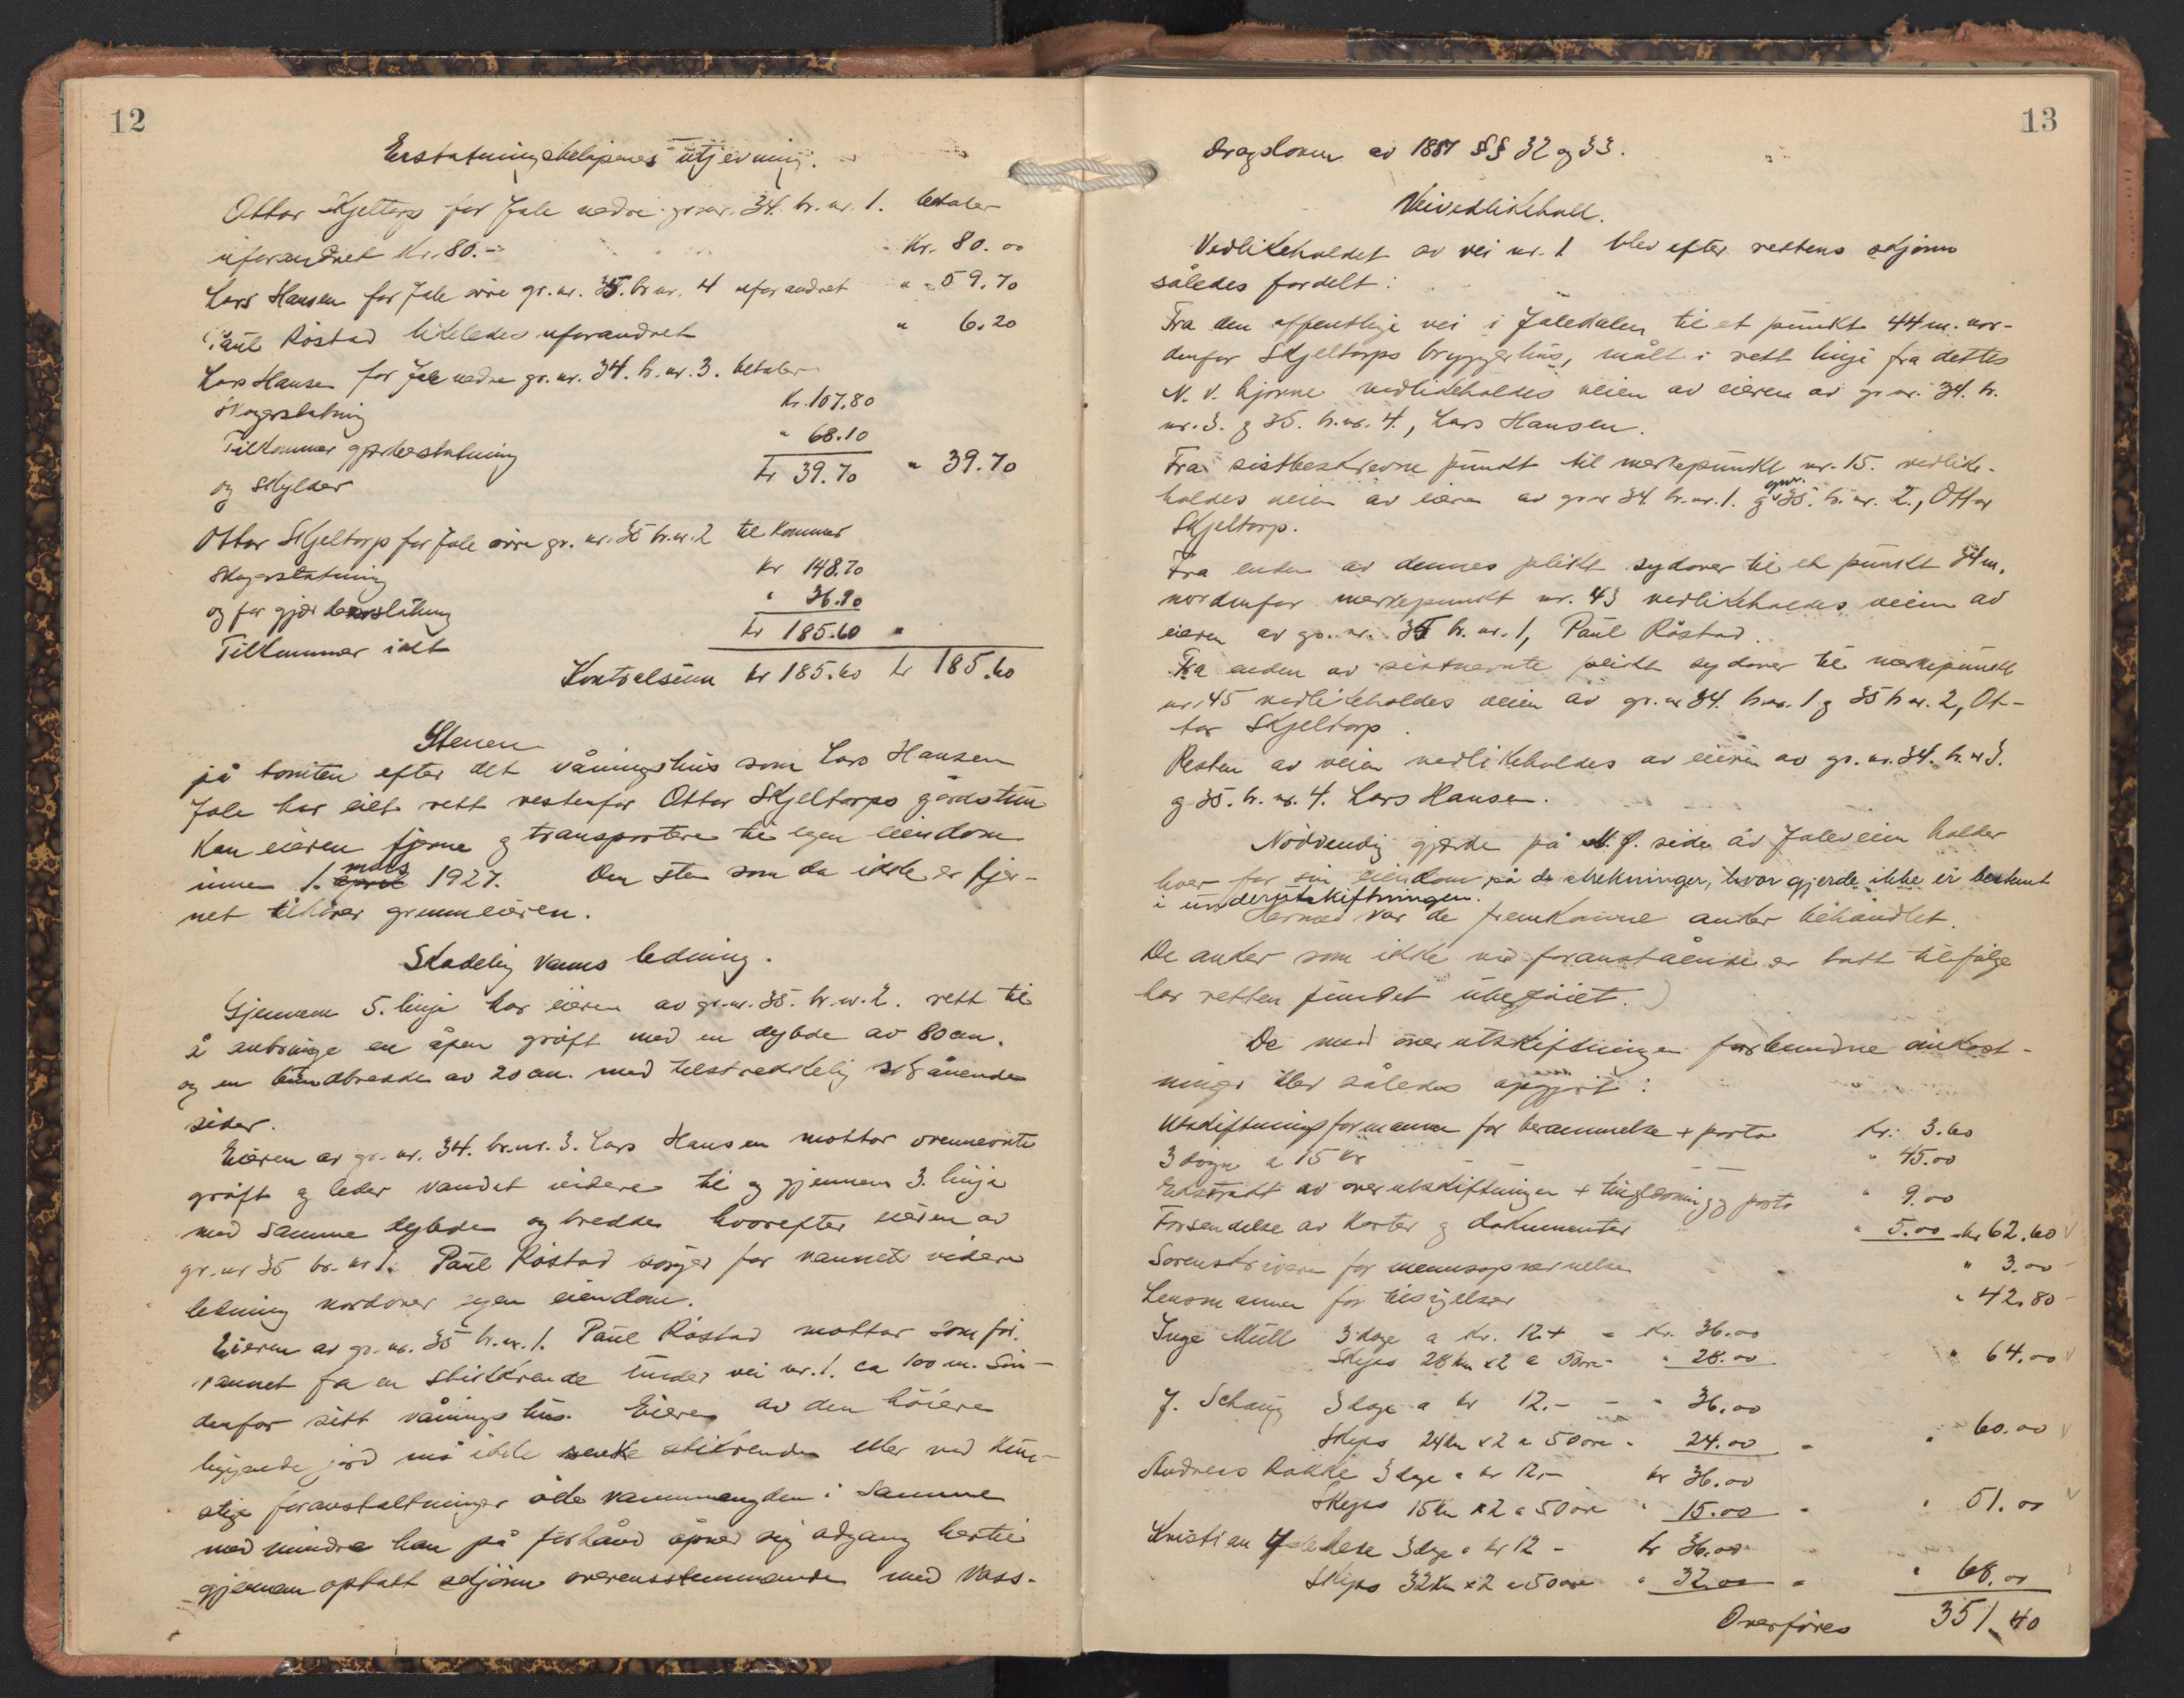 12
Erstatningsbeløpenes utjevning.
Ottar Skjeltorp for Jale nedre gr.nr. 34. br.nr. 1. betaler
uforandret kr. 80.- Kr. 80.00
Lars Hansen for Jale øvre gr.nr. 35. br.nr. 4 uforandret " 59.70
Paul Röstad likeledes uforandret " 6.20
Lars Hansen for Jale nedre gr.nr. 34. br.nr. 3. betaler
Skogerstatning Kr. 107.80
Tilkommer gjerdeerstatning " 68.10
og skylder kr 39.70 " 39.70
Ottar Skjeltorp for Jale øvre gr.nr. 35 br.nr. 2 tilkommer
Skogerstatning kr 148.70
og for gjerdeerstatning " 36.90
Tilkommer ialt kr 185.60 "
Kontrolsum kr 185.60 kr 185.60
Stenen
på tomten efter det våningshus som Lars Hansen
Jale har eiet rett vestenfor Ottar Skjeltorps gårdstun
kan eieren fjerne og transportere til egen eiendom
innen 1. april mars 1927. Den sten som da ikke er fjer-
net tilhører grunneieren.
Skadelig vanns ledning.
Gjennem 5. linje har eieren av gr.nr. 35. br.nr. 2. rett til
å anbringe en åpen grøft med en dybde av 80 cm.
og en bundbredde av 20 cm. med tilstrekkelig skrånende
sider.
Eieren av gr.nr. 34. br.nr. 3. Lars Hansen mottar ovennevnte
grøft og leder vandet videre til og gjennem 3. linje
med samme dybde og bredde hvorefter eieren av
gr.nr 35 br.nr 1. Paul Röstad sørger for vannets videre
ledning nordover egen eiendom.
Eieren av gr.nr. 35 br.nr. 1. Paul Röstad mottar som før
vannet fra en stikkrende under vei nr. 1. ca 100 m. søn-
denfor sitt våningshus. Eieren av den höiere
liggende jord må ikke senke stikrenden eller ved kun-
stige foranstaltninger øke vannmengden i samme
med mindre han på forhånd åpner sig adgang hertil
gjennem optatt skjønn overensstemmende med Vass-
13
dragsloven av 1887 §§ 32 og 33.
Veivedlikehold.
Vedlikeholdet av vei nr. 1 blev efter rettens skjønn
således fordelt:
Fra den offentlige vei i Jaledalen til et punkt 44 m. nor-
denfor Skjeltorps bryggerhus, målt i rett linje fra dettes
N. V. hjørne vedlikeholdes veien av eieren av gr.nr. 34. br.
nr. 3. og 35. br.nr. 4., Lars Hansen.
Fra sistbeskrevne punkt til merkepunkt nr. 15. vedlike-
holdes veien av eieren av gr.nr 34. br.nr. 1. og gnr. 35. br.nr. 2., Ottar
Skjeltorp.
Fra enden av dennes plikt sydover til et punkt 34 m.
nordenfor merkepunkt nr. 43 vedlikeholdes veien av
eieren av gr.nr. 35 br.nr. 1, Paul Röstad.
Fra enden av sistnevnte plikt sydover til merkepunkt
nr. 45 vedlikeholdes veien av gr.nr 34. br.nr. 1 og 35 br.nr. 2, Ot-
tar Skjeltorp.
Resten av veien vedlikeholdes av eieren av gr.nr. 34. br.nr 3.
og 35. br.nr. 4. Lars Hansen.
Nödvendig gjerde på side av Jaleveien holder
hver for sin eiendom på de strekninger, hvor gjerde ikke er bestemt
i underutskiftningen.
Hermed var de fremkomne anker behandlet.
De anker som ikke ved foranstående er tatt tilfølge
har retten fundet ubeføiet.
De med overutskiftningen forbundne omkost-
ninger blev således opgjort:
Utskiftningsformannen for berammelse + porto Kr. 3.60
3 døgn a 15 kr " 45.00
Ekstrakt av overutskiftningen + tinglesning og porto " 9.00
Forsendelse av karter og dokumenter " 5.00 kr 62.60
Sorenskriveren for mennsopnevnelse " 3.00
Lensmannen for tilsigelser " 42.80
Inge Mull 3 dage a kr. 12.- = Kr. 36.00
Skyss 28 km x2 a 50 øre " 28.00 " 64.00
J. Schaug 3 dage a kr 12.- - " 36.00
Skyss 24 km x2 a 50 øre " 24.00 = " 60.00
Andreas Rakke 3 dage a kr 12.- kr 36.00
Skyss 15 km x2 a 50 øre " 15.00 = " 51.00
Kristian 3 dage a kr 12 - kr 36.00
Skyss 32 km x2 a 50 øre " 32.00 = " 68.00
Overføres 351.40